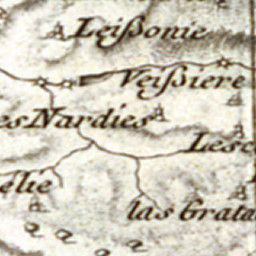 Leißonie
Veißiere
es Nardies
Lesc
élie
las Grata